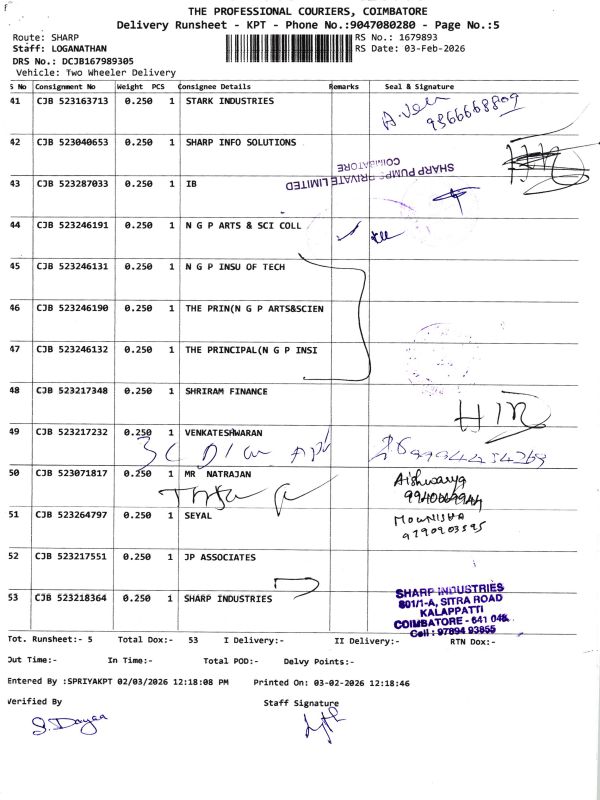 THE PROFESSIONAL COURIERS, COIMBATORE
Delivery Runsheet - KPT - Phone No.:9047080280 - Page No.:5
Route: SHARP RS No.: 1679893
Staff: LOGANATHAN RS Date: 03-Feb-2026
DRS No.: DCJB167989305
Vehicle: Two Wheeler Delivery
S No Consignment No Weight PCS Consignee Details Remarks Seal & Signature
41 CJB 523163713 0.250 1 STARK INDUSTRIES
42 CJB 523040653 0.250 1 SHARP INFO SOLUTIONS
SHARP PUMPS PRIVATE LIMITED
COIMBATORE
43 CJB 523287033 0.250 1 IB
44 CJB 523246191 0.250 1 N G P ARTS & SCI COLL
45 CJB 523246131 0.250 1 N G P INSU OF TECH
46 CJB 523246190 0.250 1 THE PRIN(N G P ARTS&SCIEN
47 CJB 523246132 0.250 1 THE PRINCIPAL(N G P INSI
48 CJB 523217348 0.250 1 SHRIRAM FINANCE
49 CJB 523217232 0.250 1 VENKATESHWARAN
50 CJB 523071817 0.250 1 MR NATRAJAN Aishwarya
51 CJB 523264797 0.250 1 SEYAL MOUNISHA
9790903595
52 CJB 523217551 0.250 1 JP ASSOCIATES
53 CJB 523218364 0.250 1 SHARP INDUSTRIES
SHARP INDUSTRIES
801/1-A, SITRA ROAD
KALAPPATTI
COIMBATORE - 641 048.
Cell : 97894 93855
Tot. Runsheet:- 5 Total Dox:- 53 I Delivery:- II Delivery:- RTN Dox:-
Out Time:- In Time:- Total POD:- Delvy Points:-
Entered By :SPRIYAKPT 02/03/2026 12:18:08 PM Printed On: 03-02-2026 12:18:46
Verified By Staff Signature
S. Dayaa